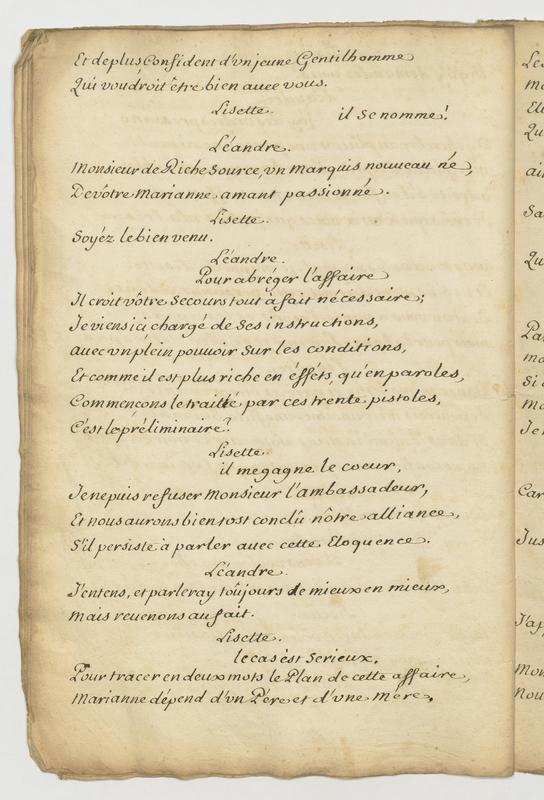 Et deplus Confident d'vn jeune Gentilhomme
Qui voudroit être bien auec vous.
Lisette.
il se nomme!
Léandre.
Monsieur de Riche Source, vn Marquis nouueau né,
De vôtre Marianne amant passionné.
Lisette.
Soyéz le bien venu.
Léandre.
Pour abréger l'affaire
Il croit vôtre Secours tout à fait nécessaire;
Je viens ici chargé de Ses instructions,
auec vn pléin pouuoir Sur les conditions,
Et comme il est plus riche en éffets, qu'en paroles,
Commencons le traitté, par ces trente pistoles,
C'est le préliminaire?
Lisette.
il me gagne le coeur,
Je ne puis refuser Monsieur l'ambassadeur,
Et nous aurons bien tost conclû nôtre alliance,
S'il persiste à parler auec cette Eloquence.
Léandre.
J'entens, et parleray toûjours de mieux en mieux,
mais reuenons au fait.
Lisette.
le cas èst Serieux,
Pour tracer en deux mots le Plan de cette affaire,
Marianne dépend d'vn Pére et d'vne Mére,
Les
ma
Qu
Sa
Qu
Si
Je
Car
Jus
J'ap
Mon
Nou